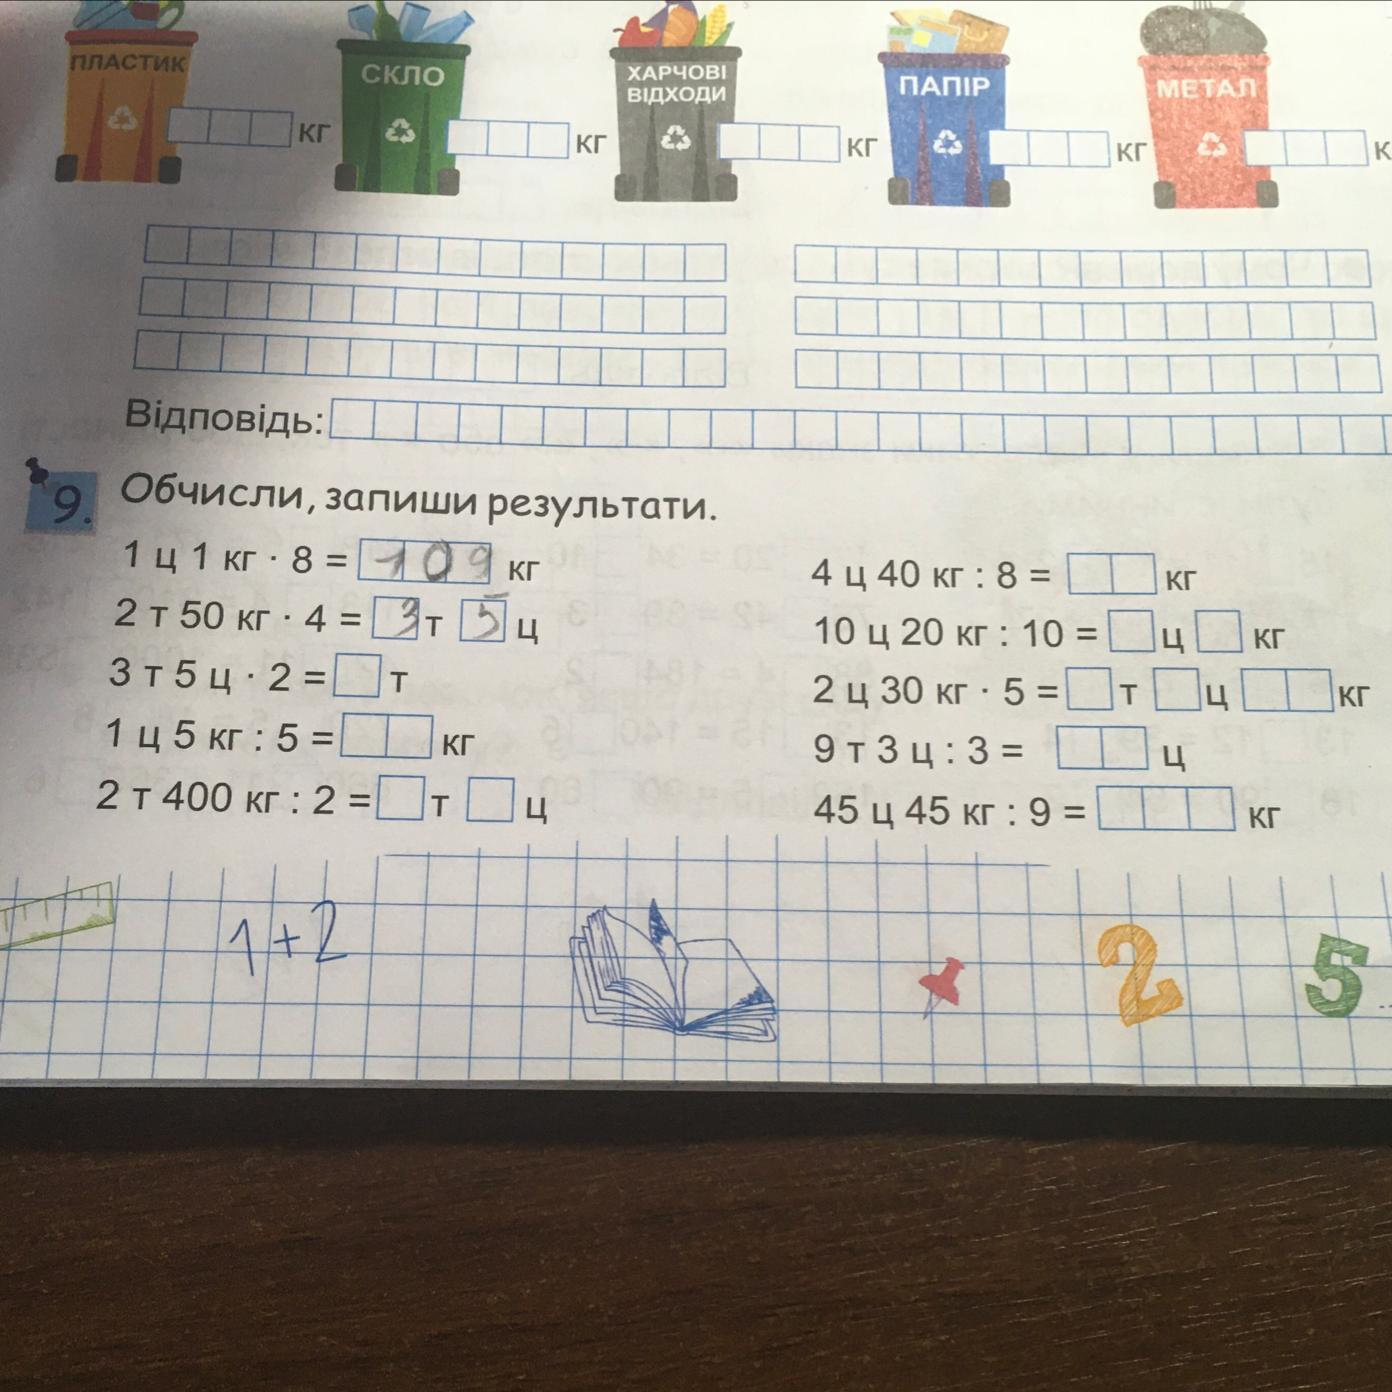 ПЛАСТИК
кг
СКЛО
кг
ХАРЧОВІ
ВІДХОДИ
кг
ПАПІР
кг
МЕТАЛ
к
Відповідь:
9. Обчисли, запиши результати.
1 ц 1 кг · 8 = 109 кг
2 т 50 кг · 4 = 3 т 5 ц
3 т 5 ц · 2 = т
1 ц 5 кг : 5 = кг
2 т 400 кг : 2 = т ц
4 ц 40 кг : 8 = кг
10 ц 20 кг : 10 = ц кг
2 ц 30 кг · 5 = т ц кг
9 т 3 ц : 3 = ц
45 ц 45 кг : 9 = кг
1+2
2
5